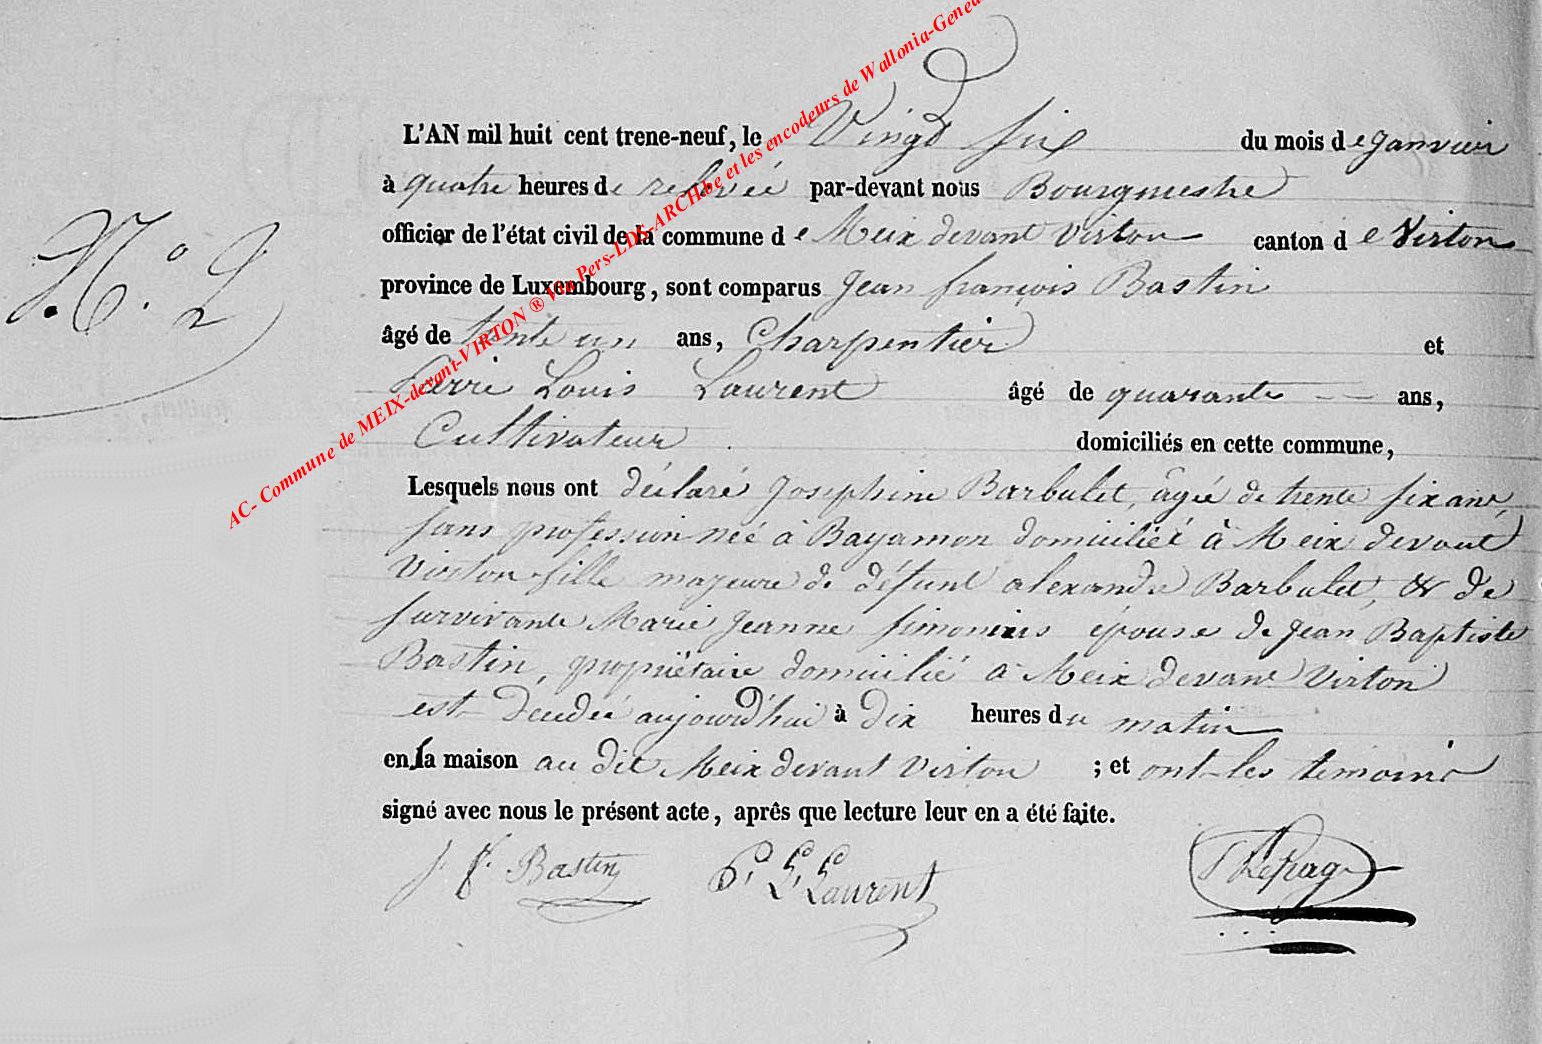 AC- Commune de MEIX-devant-VIRTON ® Via Pers-LDS-ARCHbe et les encodeurs de Wallonia-Genea
N.° 2
L'AN mil huit cent trene-neuf, le Vingt six du mois de Janvier
à quatre heures de relevée par-devant nous Bourgmestre
officier de l'état civil de la commune de Meix devant Virton canton de Virton
province de Luxembourg, sont comparus Jean françois Bastin
âgé de trente un ans, Charpentier et
Pierre Louis Laurent âgé de quarante -- ans,
Cultivateur. domiciliés en cette commune,
Lesquels nous ont déclaré Josephine Barbulet, âgée de trente six ans,
sans profession née à Bayamon domiciliée à Meix devant
Virton fille majeure de défunt alexandre Barbulet, & de
survivante Marie Jeanne simonnis épouse de Jean Baptiste
Bastin, propriétaire domicilié à Meix devant Virton
est décédée aujourd'hui à dix heures du matin
en la maison au dit Meix devant Virton ; et ont les témoins
signé avec nous le présent acte, après que lecture leur en a été faite.
J. F. Bastin P. L. Laurent